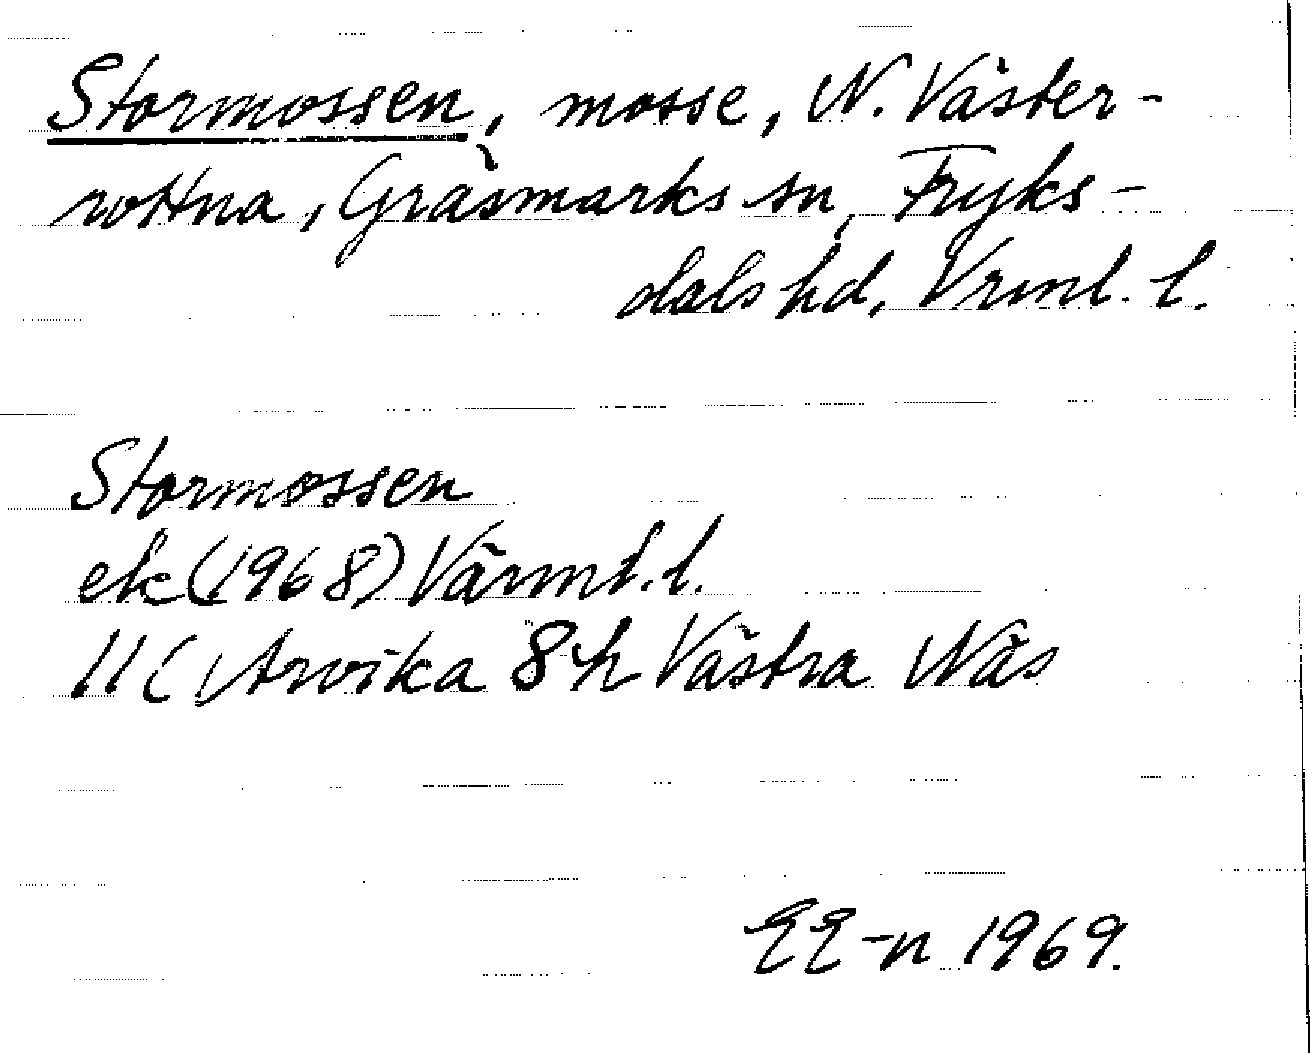 Stormossen, mosse, N. Väster-
rottna, Gräsmarks sn, Fryks-
dals hd, Vrml. l.
Stormossen
ek (1968) Värml. l.
11C Arvika 8h Västra Näs
EE-n 1969.